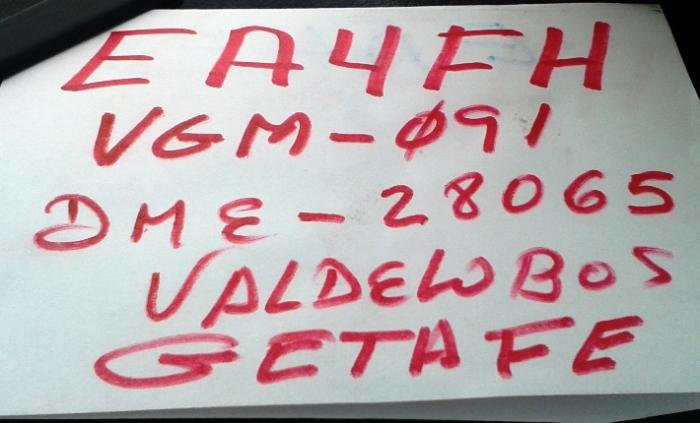 EA4FH
VGM-Ø91
DME-28065
VALDELOBOS
GETAFE